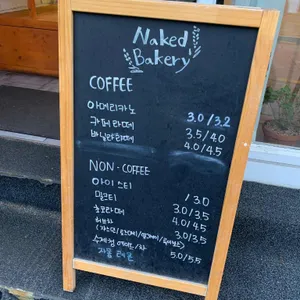 Naked
Bakery
COFFEE
아메리카노 3.0/3.2
카페라떼 3.5/4.0
바닐라라떼 4.0/4.5
NON-COFFEE
아이스티 /3.0
밀크티 3.0/3.5
초코라떼 4.0/4.5
허브차 3.0/3.5
수제청 에이드/차 5.0/5.5
자몽